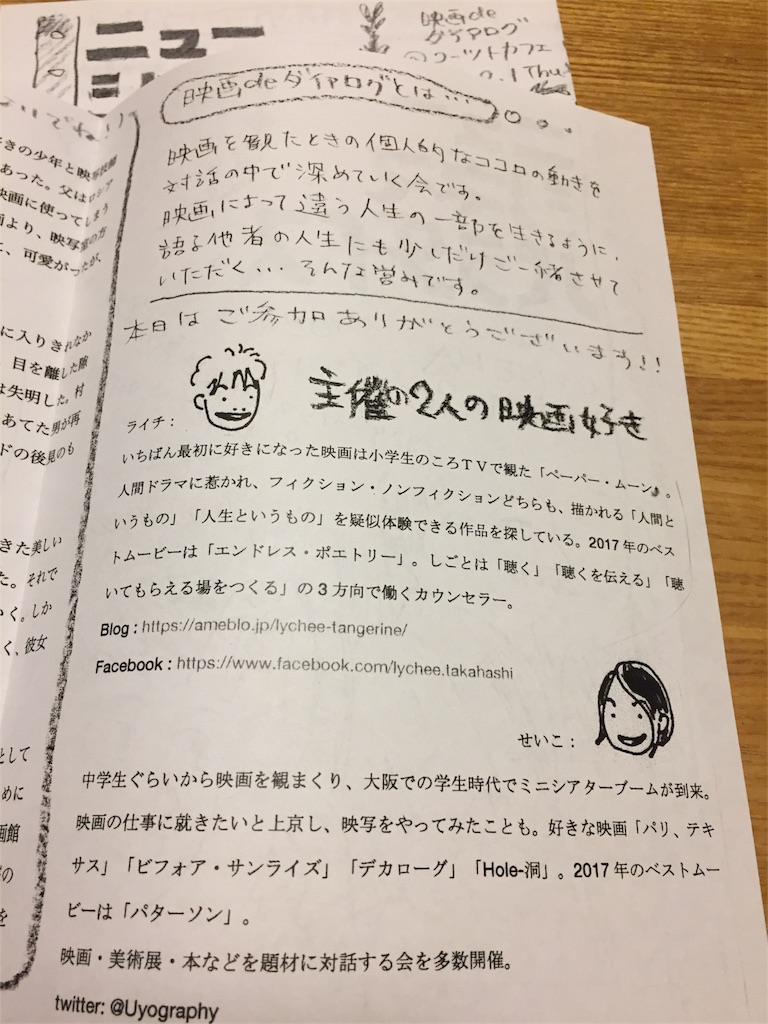 ニュー
映画de
ダイアログ
@コーツトカフェ
.1 Thu
映画deダイアログとは…
映画を観たときの個人的なココロの動きを
対話の中で深めていく会です。
映画によって違う人生の一部を生きるように、
語る他者の人生にも少しだけご一緒させて
いただく…そんな営みです。
本日はご参加ありがとうございます!!
主催の2人の映画好き
ライチ:
いちばん最初に好きになった映画は小学生のころTVで観た「ペーパー・ムーン」。
人間ドラマに惹かれ、フィクション・ノンフィクションどちらも、描かれる「人間と
いうもの」「人生というもの」を疑似体験できる作品を探している。2017年のベス
トムービーは「エンドレス・ポエトリー」。しごとは「聴く」「聴くを伝える」「聴
いてもらえる場をつくる」の3方向で働くカウンセラー。
Blog : https://ameblo.jp/lychee-tangerine/
Facebook : https://www.facebook.com/lychee.takahashi
せいこ:
中学生ぐらいから映画を観まくり、大阪での学生時代でミニシアターブームが到来。
映画の仕事に就きたいと上京し、映写をやってみたことも。好きな映画「パリ、テキ
サス」「ビフォア・サンライズ」「デカローグ」「Hole-洞」。2017年のベストムー
ビーは「パターソン」。
映画・美術展・本などを題材に対話する会を多数開催。
twitter: @Uyography
きの少年と映写技師
あった。父はロシア
映画に使ってしまう
画より、映写室の方
に、可愛がったが、
に入りきれなか
目を離した隙
は失明した。村
あてた男が再
ドの後見のも
きた美しい
た。それで
いく。しか
く、彼女
として
めに
画館
の
を